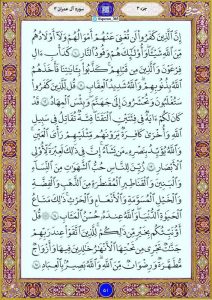 جزء ۳
سوره آل عمران ۳
إِنَّ ٱلَّذِينَ كَفَرُوا۟ لَن تُغْنِىَ عَنْهُمْ أَمْوَٰلُهُمْ وَلَآ أَوْلَٰدُهُم
مِّنَ ٱللَّهِ شَيْـًٔا وَأُو۟لَٰٓئِكَ هُمْ وَقُودُ ٱلنَّارِ ١٠ كَدَأْبِ ءَالِ
فِرْعَوْنَ وَٱلَّذِينَ مِن قَبْلِهِمْ كَذَّبُوا۟ بِـَٔايَٰتِنَا فَأَخَذَهُمُ
ٱللَّهُ بِذُنُوبِهِمْ وَٱللَّهُ شَدِيدُ ٱلْعِقَابِ ١١ قُل لِّلَّذِينَ كَفَرُوا۟
سَتُغْلَبُونَ وَتُحْشَرُونَ إِلَىٰ جَهَنَّمَ وَبِئْسَ ٱلْمِهَادُ ١٢ قَدْ
كَانَ لَكُمْ ءَايَةٌ فِى فِئَتَيْنِ ٱلْتَقَتَا فِئَةٌ تُقَٰتِلُ فِى سَبِيلِ
ٱللَّهِ وَأُخْرَىٰ كَافِرَةٌ يَرَوْنَهُم مِّثْلَيْهِمْ رَأْىَ ٱلْعَيْنِ
وَٱللَّهُ يُؤَيِّدُ بِنَصْرِهِۦ مَن يَشَآءُ إِنَّ فِى ذَٰلِكَ لَعِبْرَةً لِّأُو۟لِى
ٱلْأَبْصَٰرِ ١٣ زُيِّنَ لِلنَّاسِ حُبُّ ٱلشَّهَوَٰتِ مِنَ ٱلنِّسَآءِ
وَٱلْبَنِينَ وَٱلْقَنَٰطِيرِ ٱلْمُقَنطَرَةِ مِنَ ٱلذَّهَبِ وَٱلْفِضَّةِ
وَٱلْخَيْلِ ٱلْمُسَوَّمَةِ وَٱلْأَنْعَٰمِ وَٱلْحَرْثِ ذَٰلِكَ مَتَٰعُ
ٱلْحَيَوٰةِ ٱلدُّنْيَا وَٱللَّهُ عِندَهُۥ حُسْنُ ٱلْمَـَٔابِ ١٤ قُلْ
أَؤُنَبِّئُكُم بِخَيْرٍ مِّن ذَٰلِكُمْ لِلَّذِينَ ٱتَّقَوْا۟ عِندَ رَبِّهِمْ
جَنَّٰتٌ تَجْرِى مِن تَحْتِهَا ٱلْأَنْهَٰرُ خَٰلِدِينَ فِيهَا وَأَزْوَٰجٌ
مُّطَهَّرَةٌ وَرِضْوَٰنٌ مِّنَ ٱللَّهِ وَٱللَّهُ بَصِيرٌۢ بِٱلْعِبَادِ ١٥
٥١